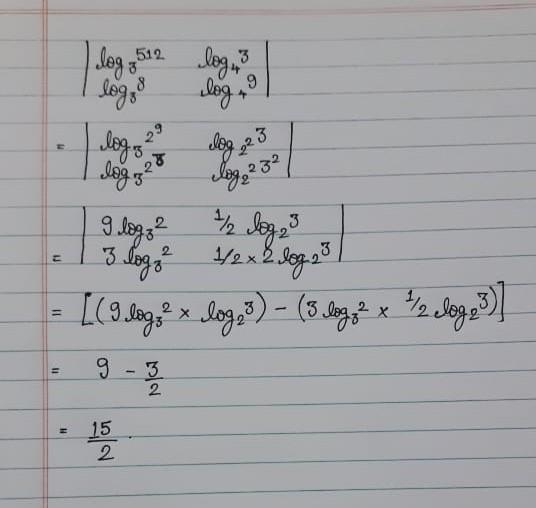 | log₃512 log₄3 |
| log₃8 log₄9 |
= | log₃2⁹ log₂²3 |
| log₃2³ log₂²3² |
= | 9 log₃2 1/2 log₂3 |
| 3 log₃2 1/2 × 2 log₂3 |
= [(9 log₃2 × log₂3) - (3 log₃2 × 1/2 log₂3)]
= 9 - 3/2
= 15/2 .